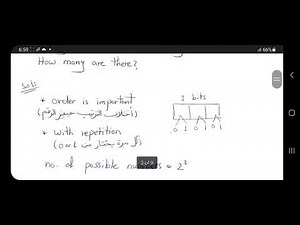 6:59
66%
How many are there?
Sol:
3 bits
* order is important
(اختلاف الترتيب بيغير الرقم)
0 1 0 1 0 1
* with repetition
(كل مرة بختار من 0 or 1)
2 of 9
no. of possible numbers = 2³